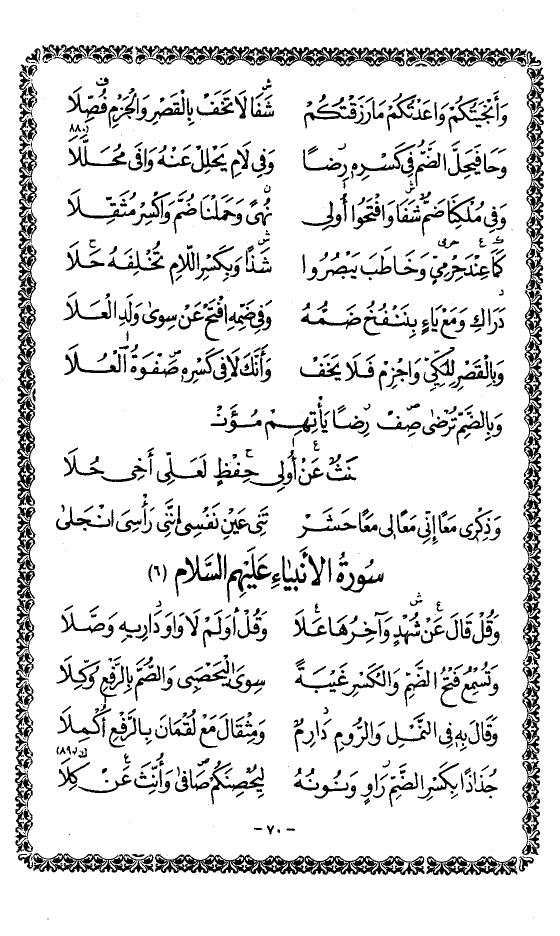 وَأَنْجَيْتُكُمْ وَاعَدْتُكُمْ مَا رَزَقْتُكُمْ شَفَا لَا تَخَفْ بِالْقَصْرِ وَالْجَزْمِ فُصِّلَا
وَحَا فَيَحِلَّ الضَّمُّ فِي كَسْرِهِ رِضًا وَفِي لَامِ يَحْلِلْ عَنْهُ وَافَى مُحَلَّلَا
وَفِي مُلْكِنَا ضَمٌّ شَفَا وَافْتَحُوا أُولِي نُهًى وَحَمَلْنَا ضُمَّ وَاكْسِرْ مُثَقِّلَا
كَمَا عِنْدَ حِرْمِيٍّ وَخَاطَبَ يَبْصُرُوا شَذًا وَبِكَسْرِ اللَّامِ تُخْلِفَهُ حَلَا
دَرَاكِ وَمَعْ يَاءٍ بِنَنْفُخُ ضَمُّهُ وَفِي ضَمِّهِ افْتَحْ عَنْ سِوَى وَلَدِ الْعَلَا
وَبِالْقَصْرِ لِلْمَكِّيِّ وَاجْزِمْ فَلَا يَخَفْ وَأَنَّكَ لَا فِي كَسْرِهِ صَفْوَةُ الْعُلَا
وَبِالضَّمِّ تُرْضَى صِفْ رِضًا يَأْتِهِمْ مُؤَنْـ
ـنَثٌ عَنْ أُولِي حِفْظٍ لَعَلِّي أَخِي حُلَا
وَذِكْرِي مَعًا إِنِّي مَعًا لِي مَعًا حَشَرْ تَنِي عَيْنِ نَفْسِي إِنَّنِي رَأْسِيَ انْجَلَى
سورة الأنبياء عليهم السلام (٦)
وَقُلْ قَالَ عَنْ شُهْدٍ وَآخِرُهَا عَلَا وَقُلْ أَوَلَمْ لَا وَاوَ دَارِيهِ وَصَّلَا
وَتُسْمِعُ فَتْحُ الضَّمِّ وَالْكَسْرِ غَيْبَةً سِوَى الْيَحْصَبِي وَالصُّمُّ بِالرَّفْعِ وُكِّلَا
وَقَالَ بِهِ فِي النَّمْلِ وَالرُّومِ دَارِمٌ وَمِثْقَالُ مَعْ لُقْمَانَ بِالرَّفْعِ أُكْمِلَا
جُذَاذًا بِكَسْرِ الضَّمِّ رَاوٍ وَنُونُهُ لِيُحْصِنَكُمْ صَافَى وَأُنِّثَ عَنْ كِلَا
- ٧٠ -